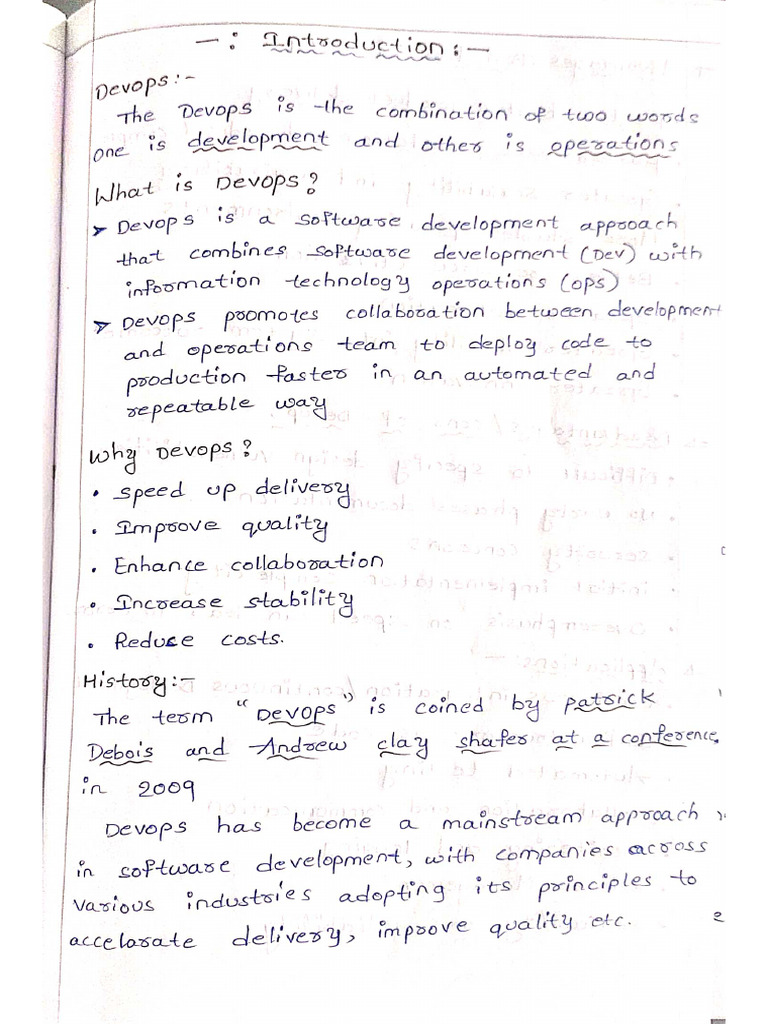 -: Introduction:-
Devops:-
The Devops is the combination of two words
one is development and other is operations
What is Devops?
➤ Devops is a software development approach
that combines software development (Dev) with
information technology operations (ops)
➤ Devops promotes collaboration between development
and operations team to deploy code to
production faster in an automated and
repeatable way
Why Devops?
• speed up delivery
• Improve quality
• Enhance collaboration
• Increase stability
• Reduce costs.
History:-
The term "Devops" is coined by patrick
Debois and Andrew clay shafer at a conference
in 2009
Devops has become a mainstream approach
in software development, with companies across
various industries adopting its principles to
accelarate delivery, improve quality etc.